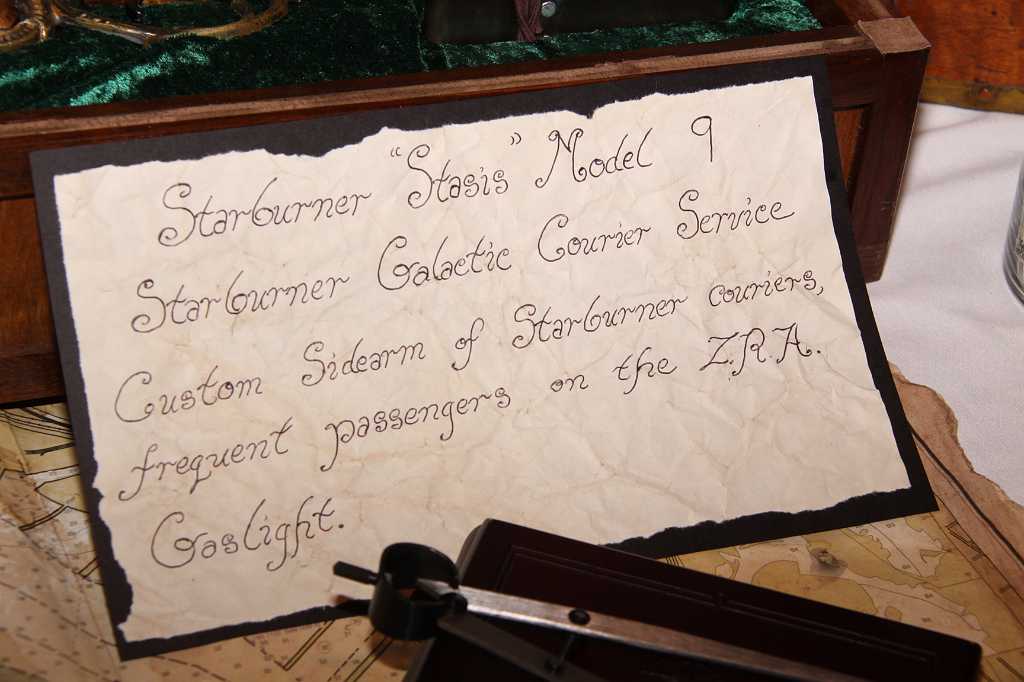 Starburner "Stasis" Model 9
Starburner Galactic Courier Service
Custom Sidearm of Starburner couriers,
frequent passengers on the Z.R.A.
Gaslight.